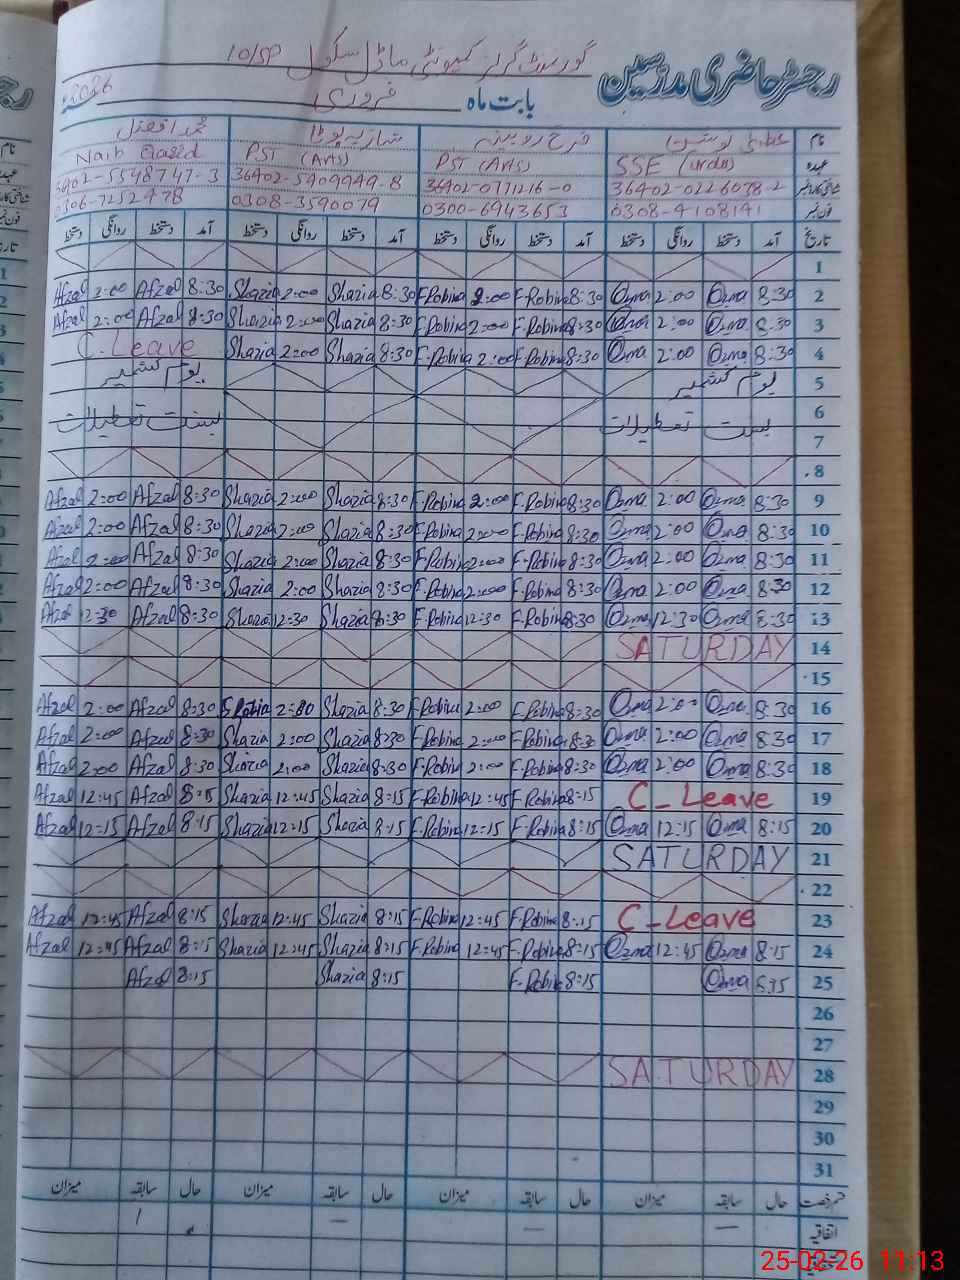 رجسٹر حاضری مدرسین گورنمنٹ گرلز کمیونٹی ماڈل سکول 10/SP
بابت ماہ فروری 2026
نام عظمیٰ نوشین فرح روبینہ شازیہ بوٹا محمد افضل
عہدہ SSE (urdu) PST (Arts) PST (Arts) Naib Qasid
شناختی کارڈ نمبر 36402-0226078-2 36402-0771216-0 36402-5909949-8 36402-5548747-3
فون نمبر 0308-4108141 0300-6943653 0308-3590079 0306-7252478
تاریخ آمد دستخط روانگی دستخط آمد دستخط روانگی دستخط آمد دستخط روانگی دستخط آمد دستخط روانگی دستخط
1
2 8:30 Ozma 2:00 Ozma 8:30 F.Robina 2:00 F.Robina 8:30 Shazia 2:00 Shazia 8:30 Afzal 2:00 Afzal
3 8:30 Ozma 2:00 Ozma 8:30 F.Robina 2:00 F.Robina 8:30 Shazia 2:00 Shazia 8:30 Afzal 2:00 Afzal
4 8:30 Ozma 2:00 Ozma 8:30 F.Robina 2:00 F.Robina 8:30 Shazia 2:00 Shazia C-Leave
5 یوم کشمیر یوم کشمیر
6 بسنت تعطیلات بسنت تعطیلات
7
8
9 8:30 Ozma 2:00 Ozma 8:30 F.Robina 2:00 F.Robina 8:30 Shazia 2:00 Shazia 8:30 Afzal 2:00 Afzal
10 8:30 Ozma 2:00 Ozma 8:30 F.Robina 2:00 F.Robina 8:30 Shazia 2:00 Shazia 8:30 Afzal 2:00 Afzal
11 8:30 Ozma 2:00 Ozma 8:30 F.Robina 2:00 F.Robina 8:30 Shazia 2:00 Shazia 8:30 Afzal 2:00 Afzal
12 8:30 Ozma 2:00 Ozma 8:30 F.Robina 2:00 F.Robina 8:30 Shazia 2:00 Shazia 8:30 Afzal 2:00 Afzal
13 8:30 Ozma 12:30 Ozma 8:30 F.Robina 12:30 F.Robina 8:30 Shazia 12:30 Shazia 8:30 Afzal 12:30 Afzal
14 SATURDAY
15
16 8:30 Ozma 2:00 Ozma 8:30 F.Robina 2:00 F.Robina 8:30 Shazia 2:00 8:30 Afzal 2:00 Afzal
17 8:30 Ozma 2:00 Ozma 8:30 F.Robina 2:00 F.Robina 8:30 Shazia 2:00 Shazia 8:30 Afzal 2:00 Afzal
18 8:30 Ozma 2:00 Ozma 8:30 F.Robina 2:00 F.Robina 8:30 Shazia 2:00 Shazia 8:30 Afzal 2:00 Afzal
19 C-Leave 8:15 F.Robina 12:45 F.Robina 8:15 Shazia 12:45 Shazia 8:15 Afzal 12:45 Afzal
20 8:15 Ozma 12:15 Ozma 8:15 F.Robina 12:15 F.Robina 8:15 Shazia 12:15 Shazia 8:15 Afzal 12:15 Afzal
21 SATURDAY
22
23 C-Leave 8:15 F.Robina 12:45 F.Robina 8:15 Shazia 12:45 Shazia 8:15 Afzal 12:45 Afzal
24 8:15 Ozma 12:45 Ozma 8:15 F.Robina 12:45 F.Robina 8:15 Shazia 12:45 Shazia 8:15 Afzal 12:45 Afzal
25 Ozma 8:15 F.Robina 8:15 Shazia 8:15 Afzal
26
27
28 SATURDAY
29
30
31
قسم رخصت حال سابقہ میزان حال سابقہ میزان حال سابقہ میزان حال سابقہ میزان
اتفاقیہ — — — 1
25-02-26 11:13